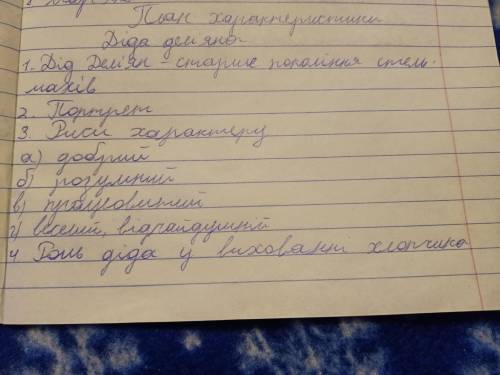 План характеристики
Діда дем'яна
1. Дід Дем'ян - старше поколіня стель-
махів
2. Портрет
3. Риси характеру
а) добрий
б) розумний
в) працьовитий
г) веселий, відчайдушній
4 Роль діда у вихованні хлопчика